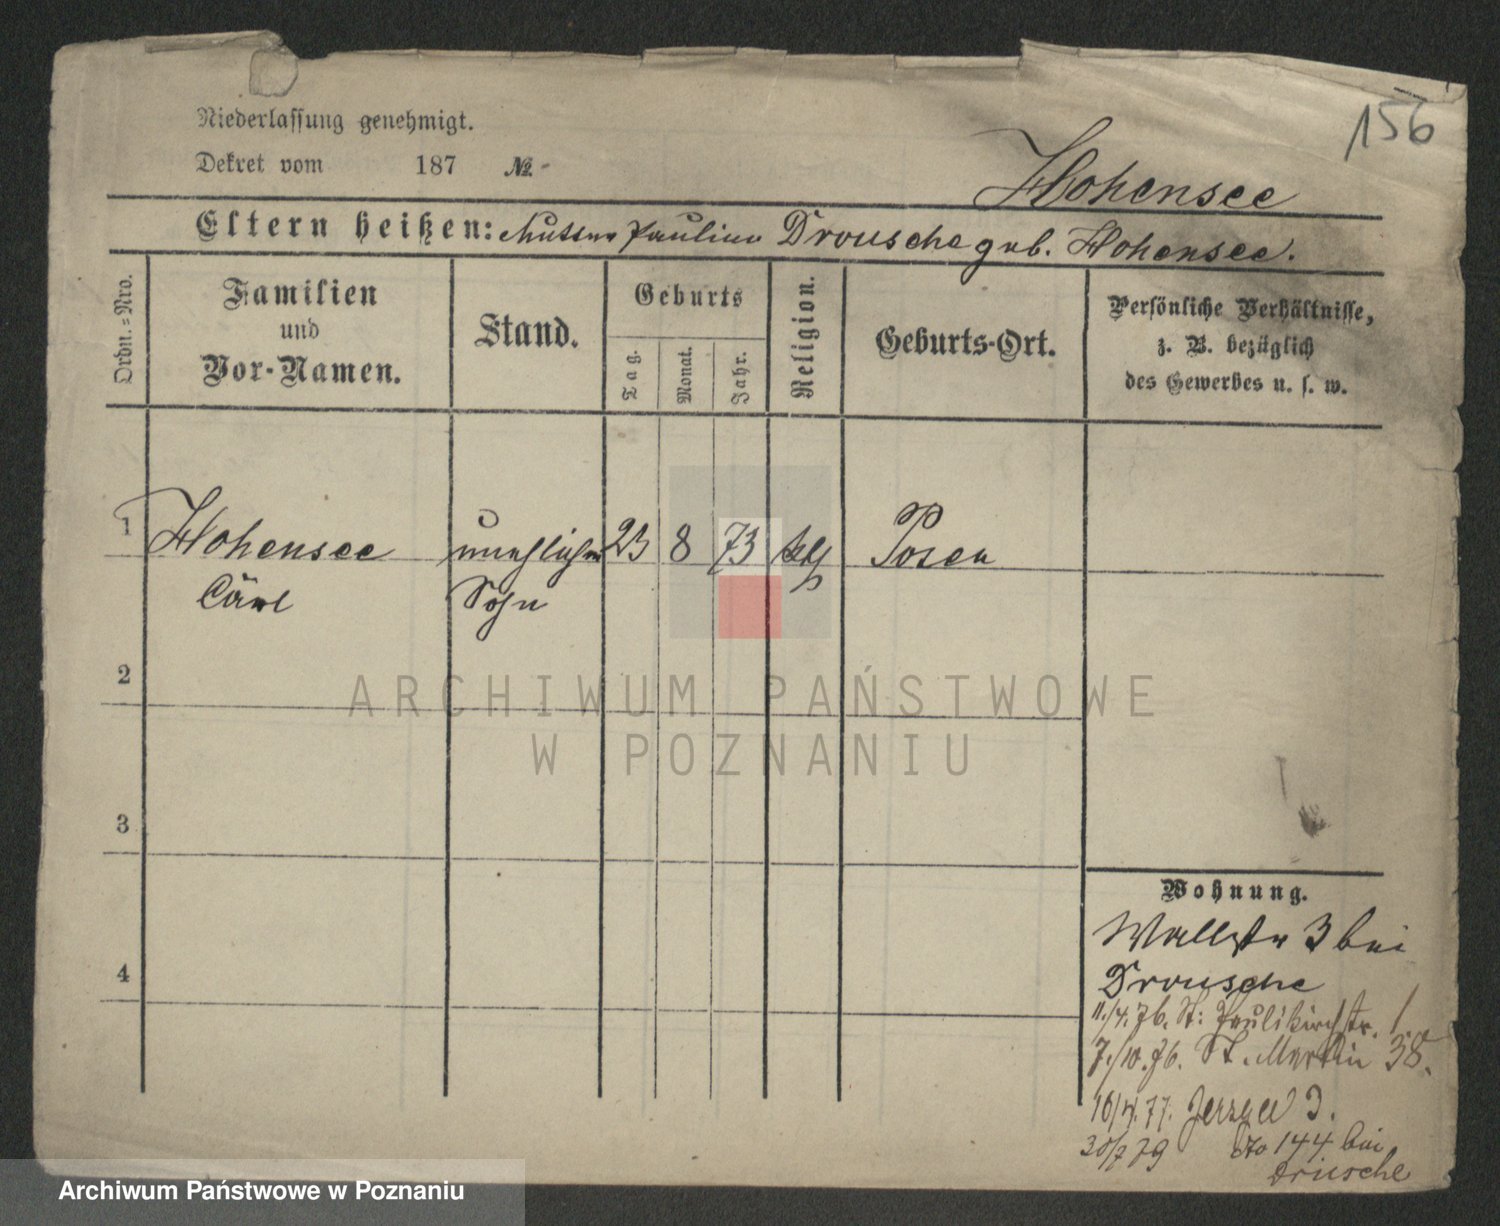 156
Niederlassung genehmigt.
Dekret vom 187 №
Hohensee
Eltern heißen: Mutter Pauline Drousche geb. Hohensee.
Ordn.=Nro.
Familien
und
Vor-Namen.
Stand.
Geburts
Tag.
Monat.
Jahr.
Religion.
Geburts-Ort.
Persönliche Verhältnisse,
z. B. bezüglich
des Gewerbes u. s. w.
1 Hohensee unehlicher 23 8 73 Posen
Carl Sohn
2
3
4
Wohnung.
Wallstr 3 bei
Drousche
11./4. 76. St: Paulikirchstr. 1.
7./10. 76. St. Martin 38.
16/4. 77. 3.
30/7 79 dto 144 bei
Drusche
ARCHIWUM PAŃSTWOWE
W POZNANIU
Archiwum Państwowe w Poznaniu